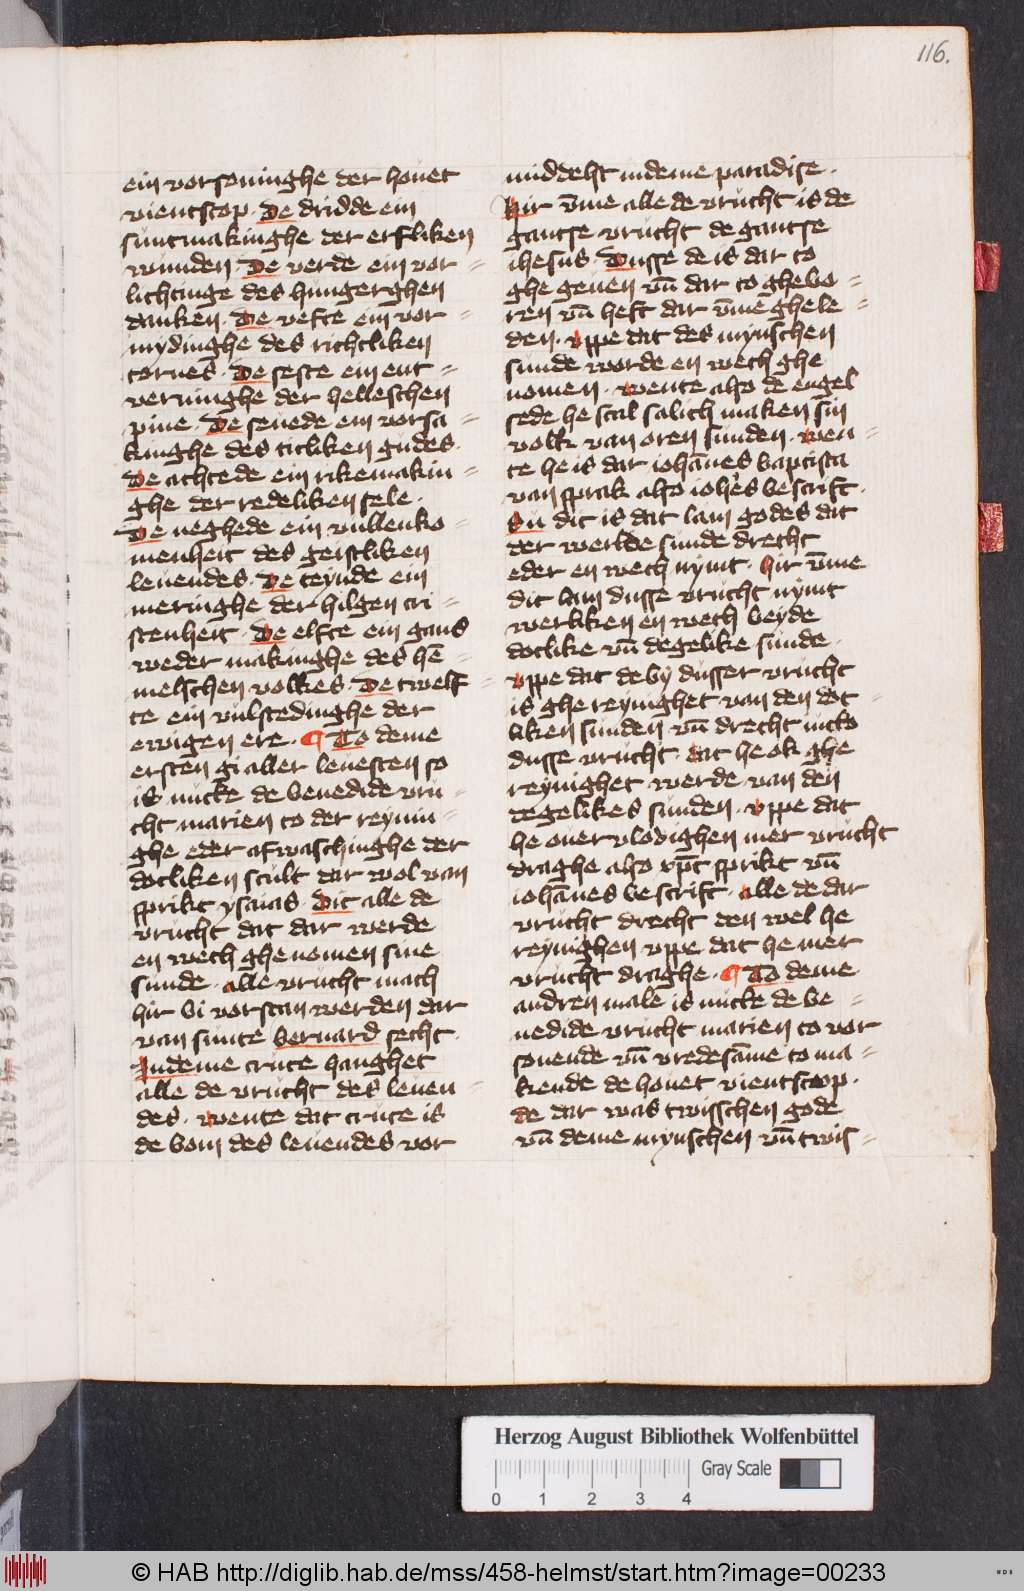 116.
ein vorsoninghe der houet
vientscop. De dridde ein
suntmakinghe der erfliken
wunden. De verde ein vor=
lichtinge des hungerghen
danken. De vefte ein vor=
mydinghe des richtliken
tornes. De seste ein ent=
verninghe der helleschen
pine. De seuede ein vorsa=
kinghe des titliken gudes.
De achtede ein rikemakin=
ghe der redeliken sele.
De neghede ein vullenko=
menheit des geistliken
leuendes. De teynde ein
meringhe der hilgen cri=
stenheit. De elfte ein gans
weder makinghe des hē=
melschen volkes. De twelf=
te ein vulstedinghe der
ewigen ere. ¶ To deme
ersten gi aller leuesten so
is nutte de benedide vru=
cht marien to der reynin=
ghe eder afwaschinghe der
dotliken scult dar wol van
sprikt ysaias. Dit alle de
vrucht dat dar werde
en wech ghenomen sine
sunde. alle vrucht mach
hir bi vorstan werden dar
van sunte bernard secht.
In deme cruce hanghet
alle de vrucht des leuen=
des. wente dat cruce is
de bom des leuendes vor
middelst in deme paradise.
Hir v̄me alle de vrucht is de
gantse vrucht de gantse
ihesus. Dusse de is dar to
ghe geuen vn̄ dar to ghebo=
ren vn̄ heft dar v̄me ghele=
den. vppe dat des mynschen
sunde worde en wech ghe
nomen. wente also de engel
sede he scal salich maken sin
volk van oren sunden. wen=
te he is dar iohānes baptista
van sprak also iohēs bescrift.
Su dit is dat lam godes dat
der werlde sunde drecht
eder en wech nymt. hir v̄me
dit lam dusse vrucht nymt
werliken en wech beyde
dotlike vn̄ degelike sunde.
vppe dat de by dusser vrucht
is ghe reynighet van den dot=
liken sunden vn̄ drecht nicto
dusse vrucht. dat he ok ghe
reynighet werde van den
degelikes sunden. vppe dat
he ouervlodighen mer vrucht
draghe also xp̄c sprikt vn̄
iohānes bescrift. alle de dar
vrucht drecht den wel he
reynighen vppe dat he mer
vrucht draghe. ¶ To deme
andren male is nutte de be=
nedide vrucht marien to vor
sonende vn̄ vredesāme to ma=
kende de houet vientscop.
de dar was twisschen gode
vn̄ deme mynschen vn̄ twis=
Herzog August Bibliothek Wolfenbüttel
Gray Scale
0 1 2 3 4
© HAB http://diglib.hab.de/mss/458-helmst/start.htm?image=00233